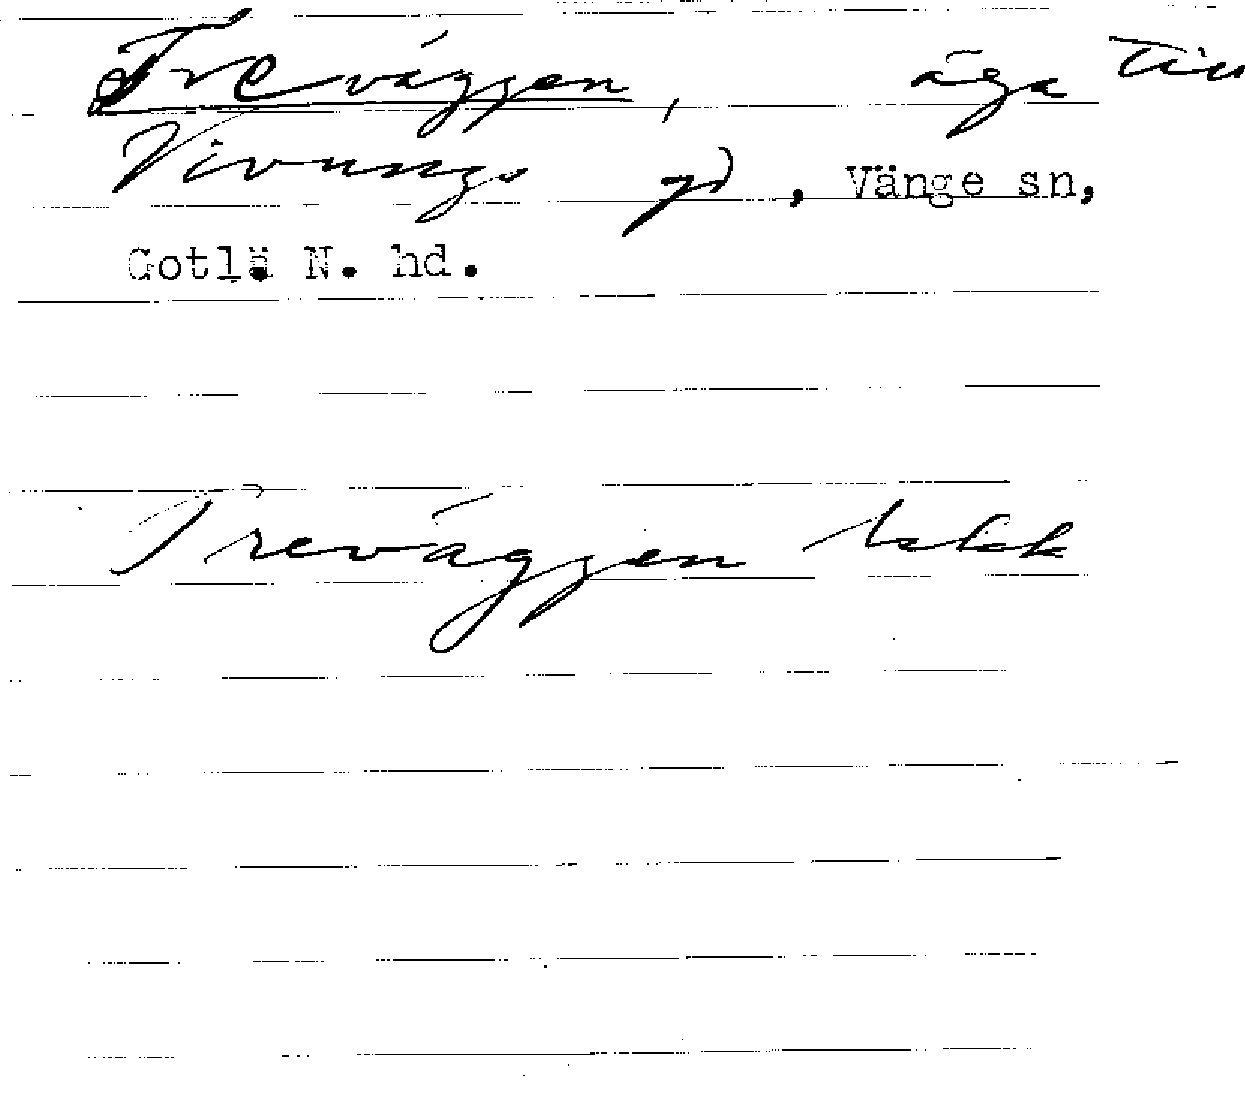 Treväggen, äga till
Vivungs gd, Vänge sn,
Gotl. N. hd.
Treväggen